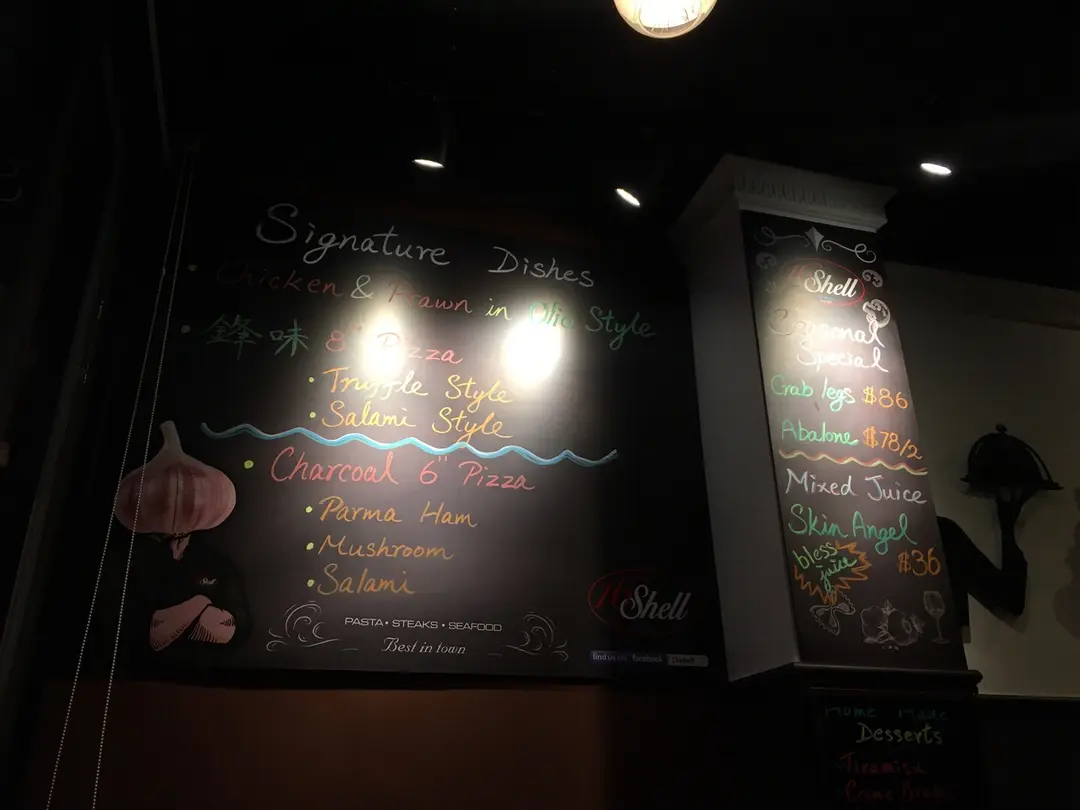 Signature Dishes
• Chicken & Prawn in Olio Style
• 鋒味 8" Pizza
• Truffle Style
• Salami Style
• Charcoal 6" Pizza
• Parma Ham
• Mushroom
• Salami
PASTA • STEAKS • SEAFOOD
Best in town
Shell
find us on facebook
Shell
Seasonal
Special
Crab legs $86
Abalone $78/2
Mixed Juice
Skin Angel
bless
juice
$36
Home Made
Desserts
Tiramisu